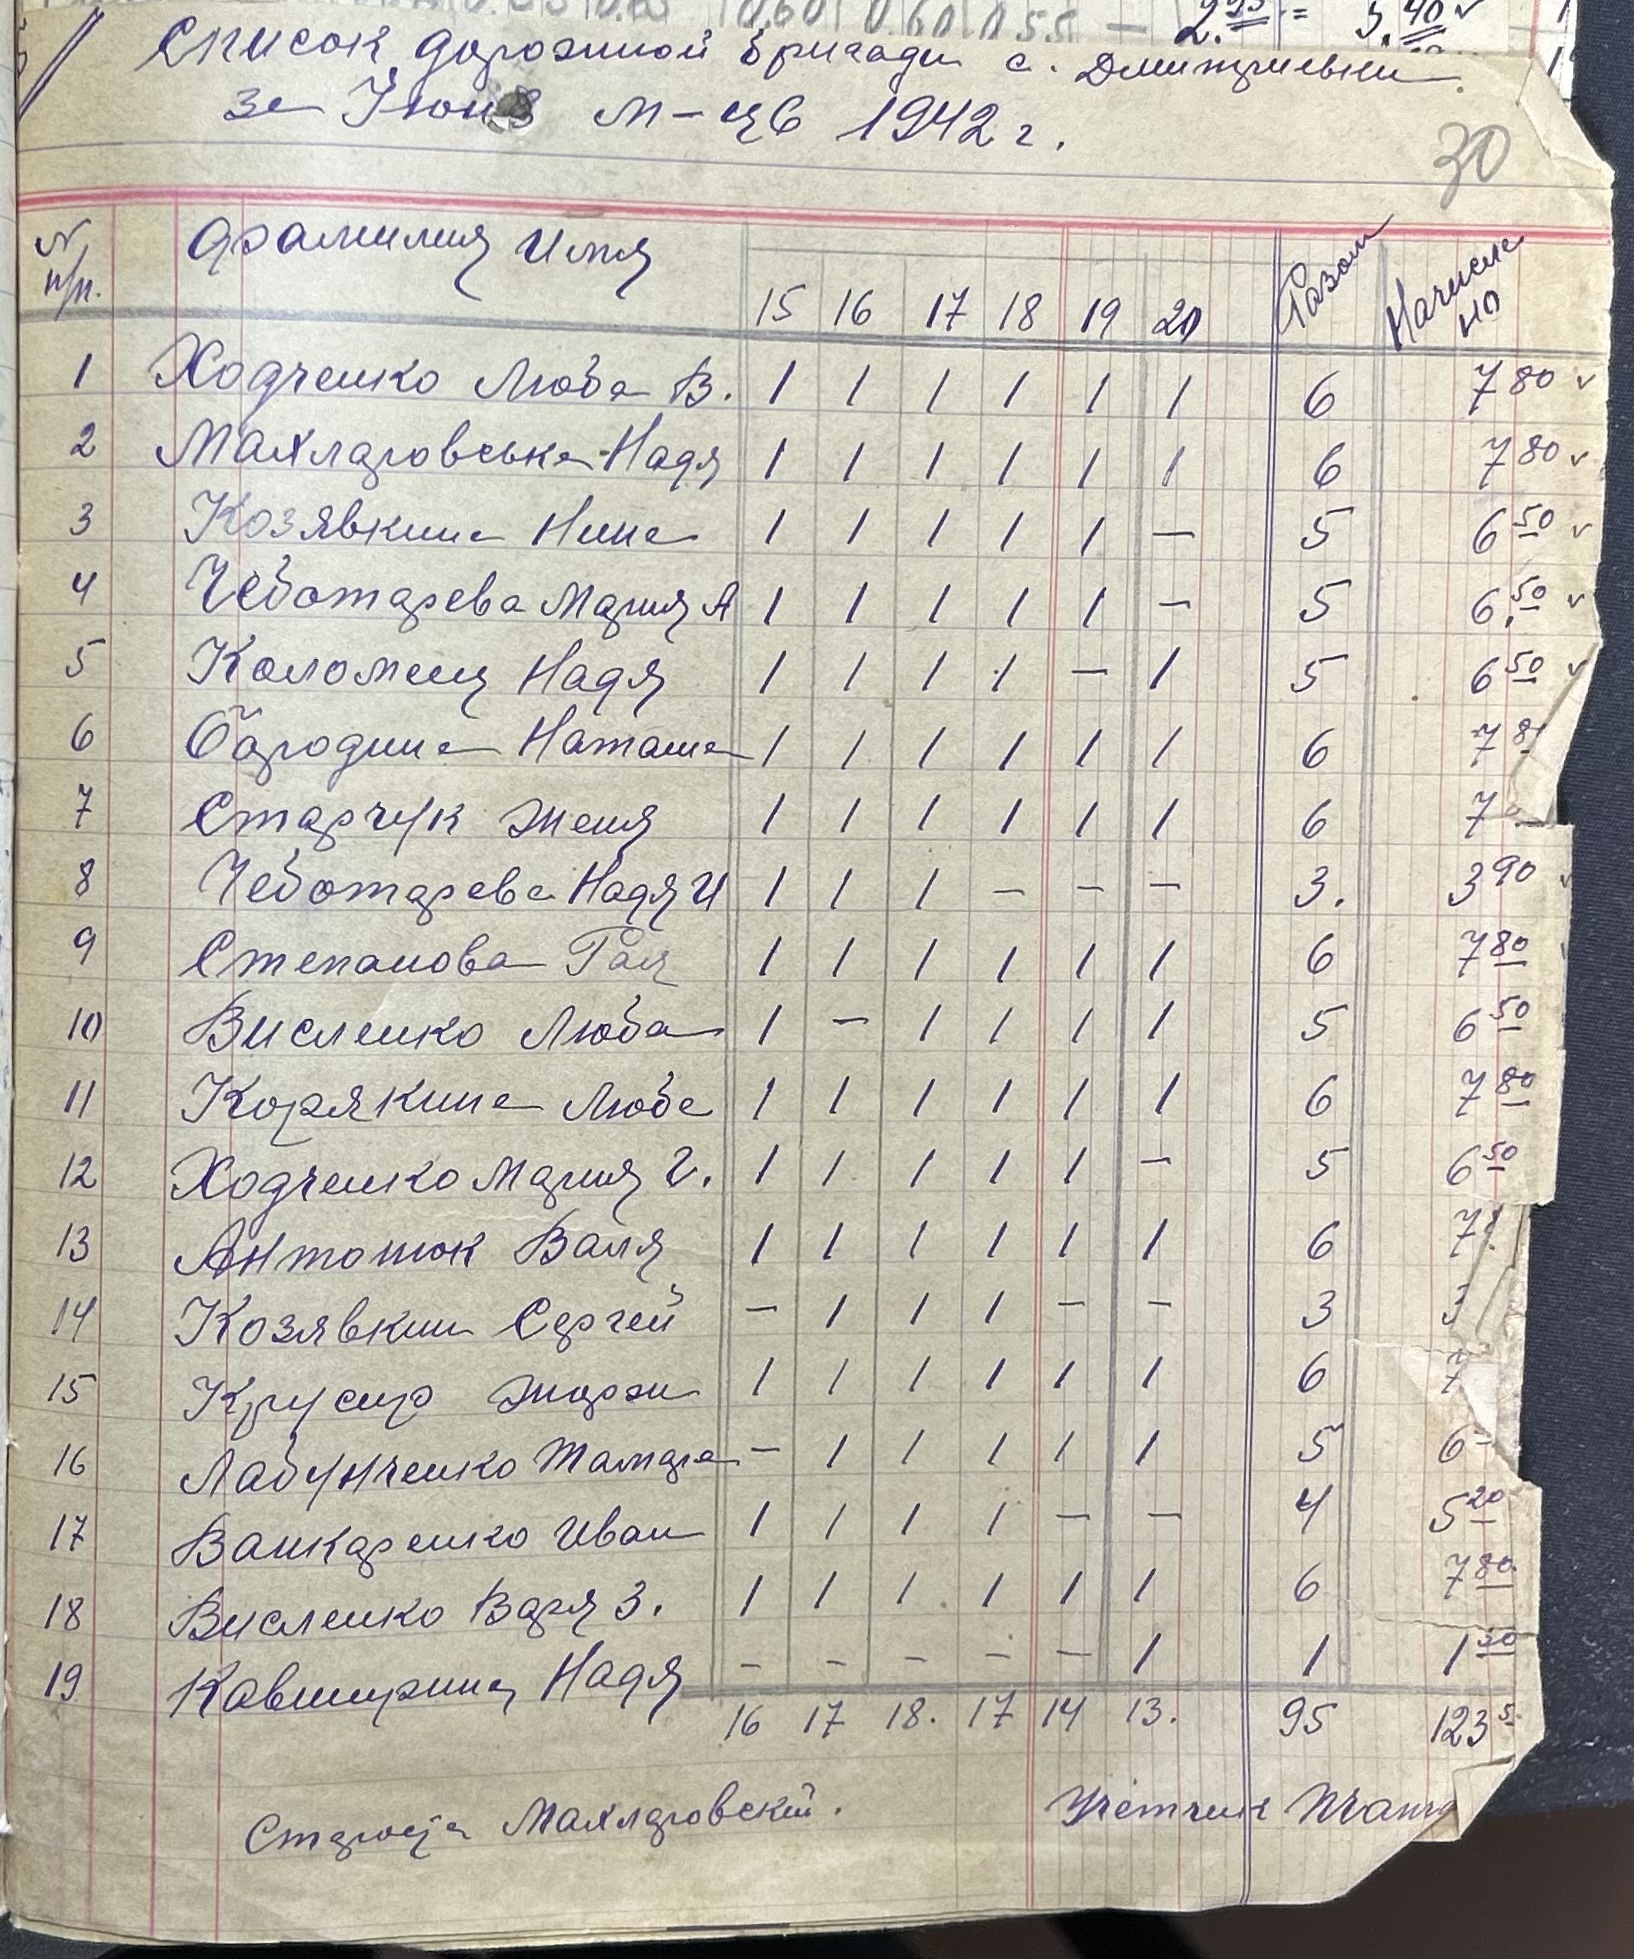 0.60 0.60 0.55 — 2.95 = 3.40 ✓
Список дорожной бригади с. Дмитриевки
за Июнь м-ць 1942 г.
30
N п/п. Фамилия Имя 15 16 17 18 19 20 Разом Начислено
1 Ходченко Люба В. 1 1 1 1 1 1 6 7 80 ✓
2 Махларовська Надя 1 1 1 1 1 1 6 7 80 ✓
3 Козявкина Нина 1 1 1 1 1 — 5 6 50 ✓
4 Чеботарева Мария А 1 1 1 1 1 — 5 6.50 ✓
5 Коломеец Надя 1 1 1 1 — 1 5 6 50 ✓
6 Бородина Наташа 1 1 1 1 1 1 6 7 8
7 Старчук Женя 1 1 1 1 1 1 6 7
8 Чеботарева Надя И 1 1 1 — — — 3. 3 90
9 Степанова Галя 1 1 1 1 1 1 6 7 80
10 Висленко Люба 1 — 1 1 1 1 5 6 50
11 Корякина Люба 1 1 1 1 1 1 6 7 80
12 Ходченко Мария Г. 1 1 1 1 1 — 5 6 50
13 Антонюк Валя 1 1 1 1 1 1 6 7 8
14 Козявкин Сергей — 1 1 1 — — 3 3
15 Крусир Жорж 1 1 1 1 1 1 6 7
16 Лабунченко Тамара — 1 1 1 1 1 5 6
17 Ванкаренко Иван 1 1 1 1 — — 4 5 20
18 Висленко Варя З. 1 1 1 1 1 1 6 7 80
19 Кавшириц Надя — — — — — 1 1 1 30
16 17 18. 17 14 13. 95 123 5
Староста Махларовский. Учётчик